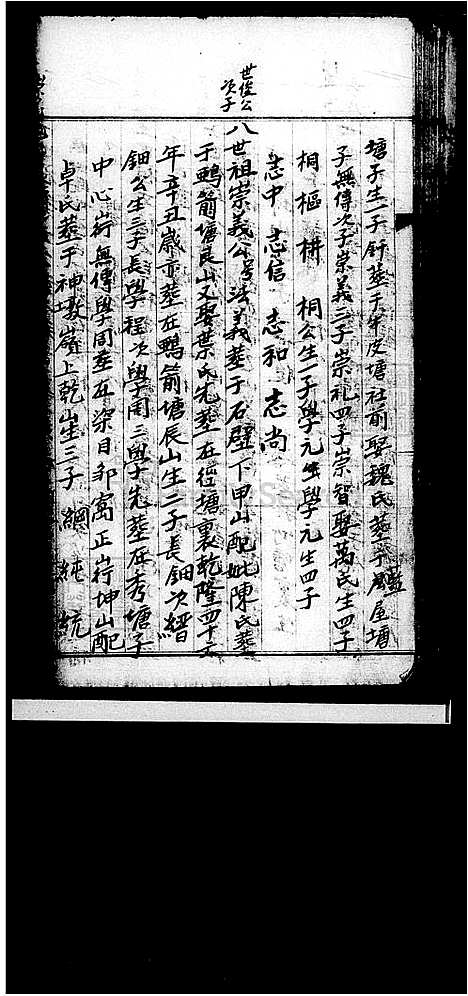 塘子生一子釺葬于牛皮塘社前娶魏氏葬于藍屋塘
子無傳次子崇義三子崇礼四子崇智娶萬氏生四子
桐 樞 栟 桐公生一子學元生學元生四子
志中 志信 志和 志尚
世俊公
次子
八世祖崇義公号法義葬于石壁下甲山配妣陳氏葬
于鴨箭塘艮山又娶葉氏先葬在徑塘裏乾隆四十六
年辛丑歲亦葬在鴨箭塘辰山生二子長鈿次縉
鈿公生三子長學程次學周三學先葬在秀塘子
中心崗無傳學周葬在梁目邹窩正崗坤山配
卓氏葬于神墩嶺上乾山生三子 綱 純 統